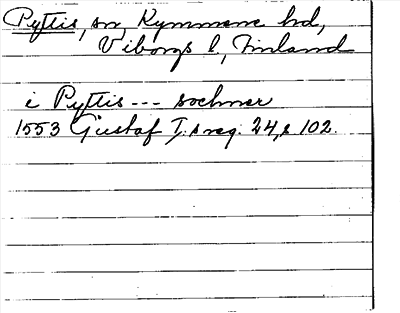 Pyttis, sn, Kymmene hd,
Viborgs l, Finland
i Pyttis --- sochner
1553 Gustaf I:s reg. 24, s 102.